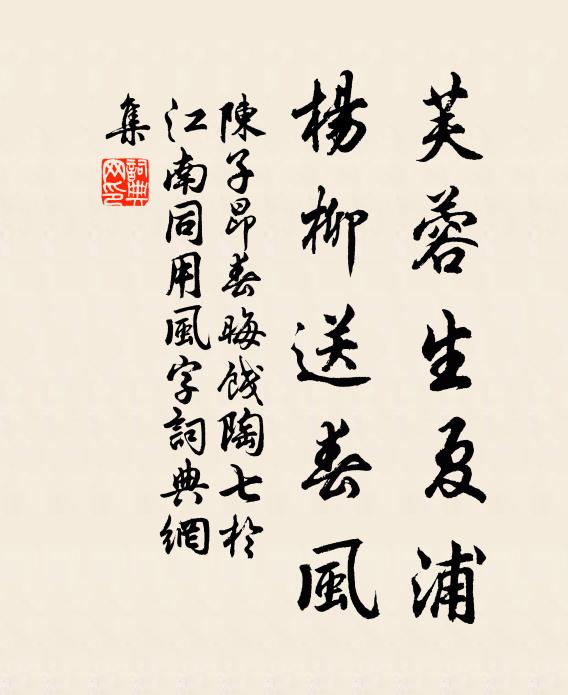 芙蓉生夏浦
楊柳送春風
陳子昂春晦餞陶七於
江南同用風字詞典網
集
詞典
网印